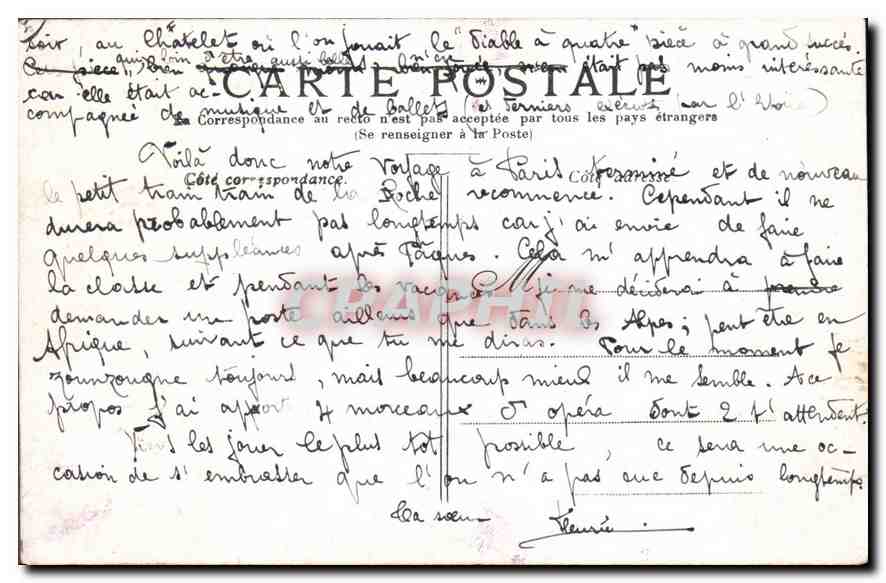 soir, au Châtelet où l'on jouait le "Diable à quatre" pièce à grand succès.
qui, loin d'être aussi belle
Ce pièce, bien n'en était pas moins intéressante
car elle était ac-
CARTE POSTALE
compagnée de musique et de ballets (et derniers exécutés par l'Etoile)
La Correspondance au recto n'est pas acceptée par tous les pays étrangers
(Se renseigner à la Poste)
Voilà donc notre voyage à Paris terminé et de nouveau
Côté correspondance. Côté adresse
le petit train train de la Roche recommence. Cependant il ne
durera probablement pas longtemps car j'ai envie de faire
quelques suppléances après Pâques. Cela m'apprendra à faire
la classe et pendant les vacances je me déciderai à prendre
CPAPHIL
demander un poste ailleurs que dans les Alpes; peut être en
Afrique, suivant ce que tu me diras. Pour le moment je
zounzougne toujours, mais beaucoup mieux il me semble. A ce
propos j'ai apporté 4 morceaux d'opéra dont 2 t'attendent.
Viens les jouer le plus tot possible, ce sera une oc-
casion de s'embrasser que l'on n'a pas eue depuis longtemps
Ta sœur Fleurie